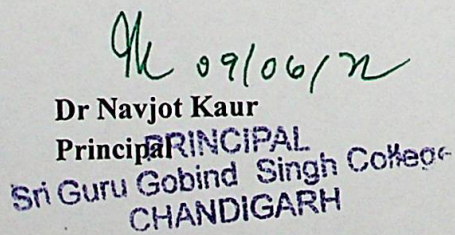 09/06/22
Dr Navjot Kaur
Principal
PRINCIPAL
Sri Guru Gobind Singh College
CHANDIGARH